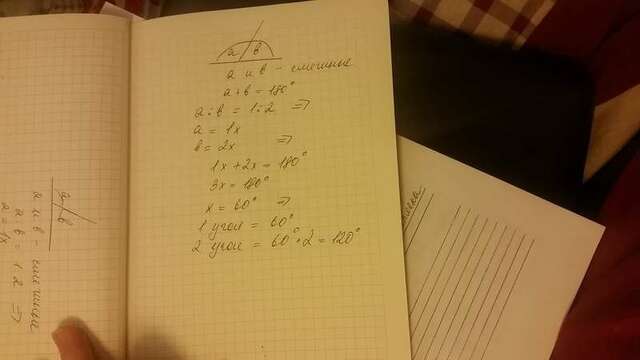 a b
a и b - смежные
a + b = 180°
a : b = 1:2 ⇒
a = 1x
b = 2x ⇒
1x + 2x = 180°
3x = 180°
x = 60° ⇒
1 угол = 60°
2 угол = 60°·2 = 120°
a b
a и b - смежные
a b = 1 2 ⇒
a = 1x